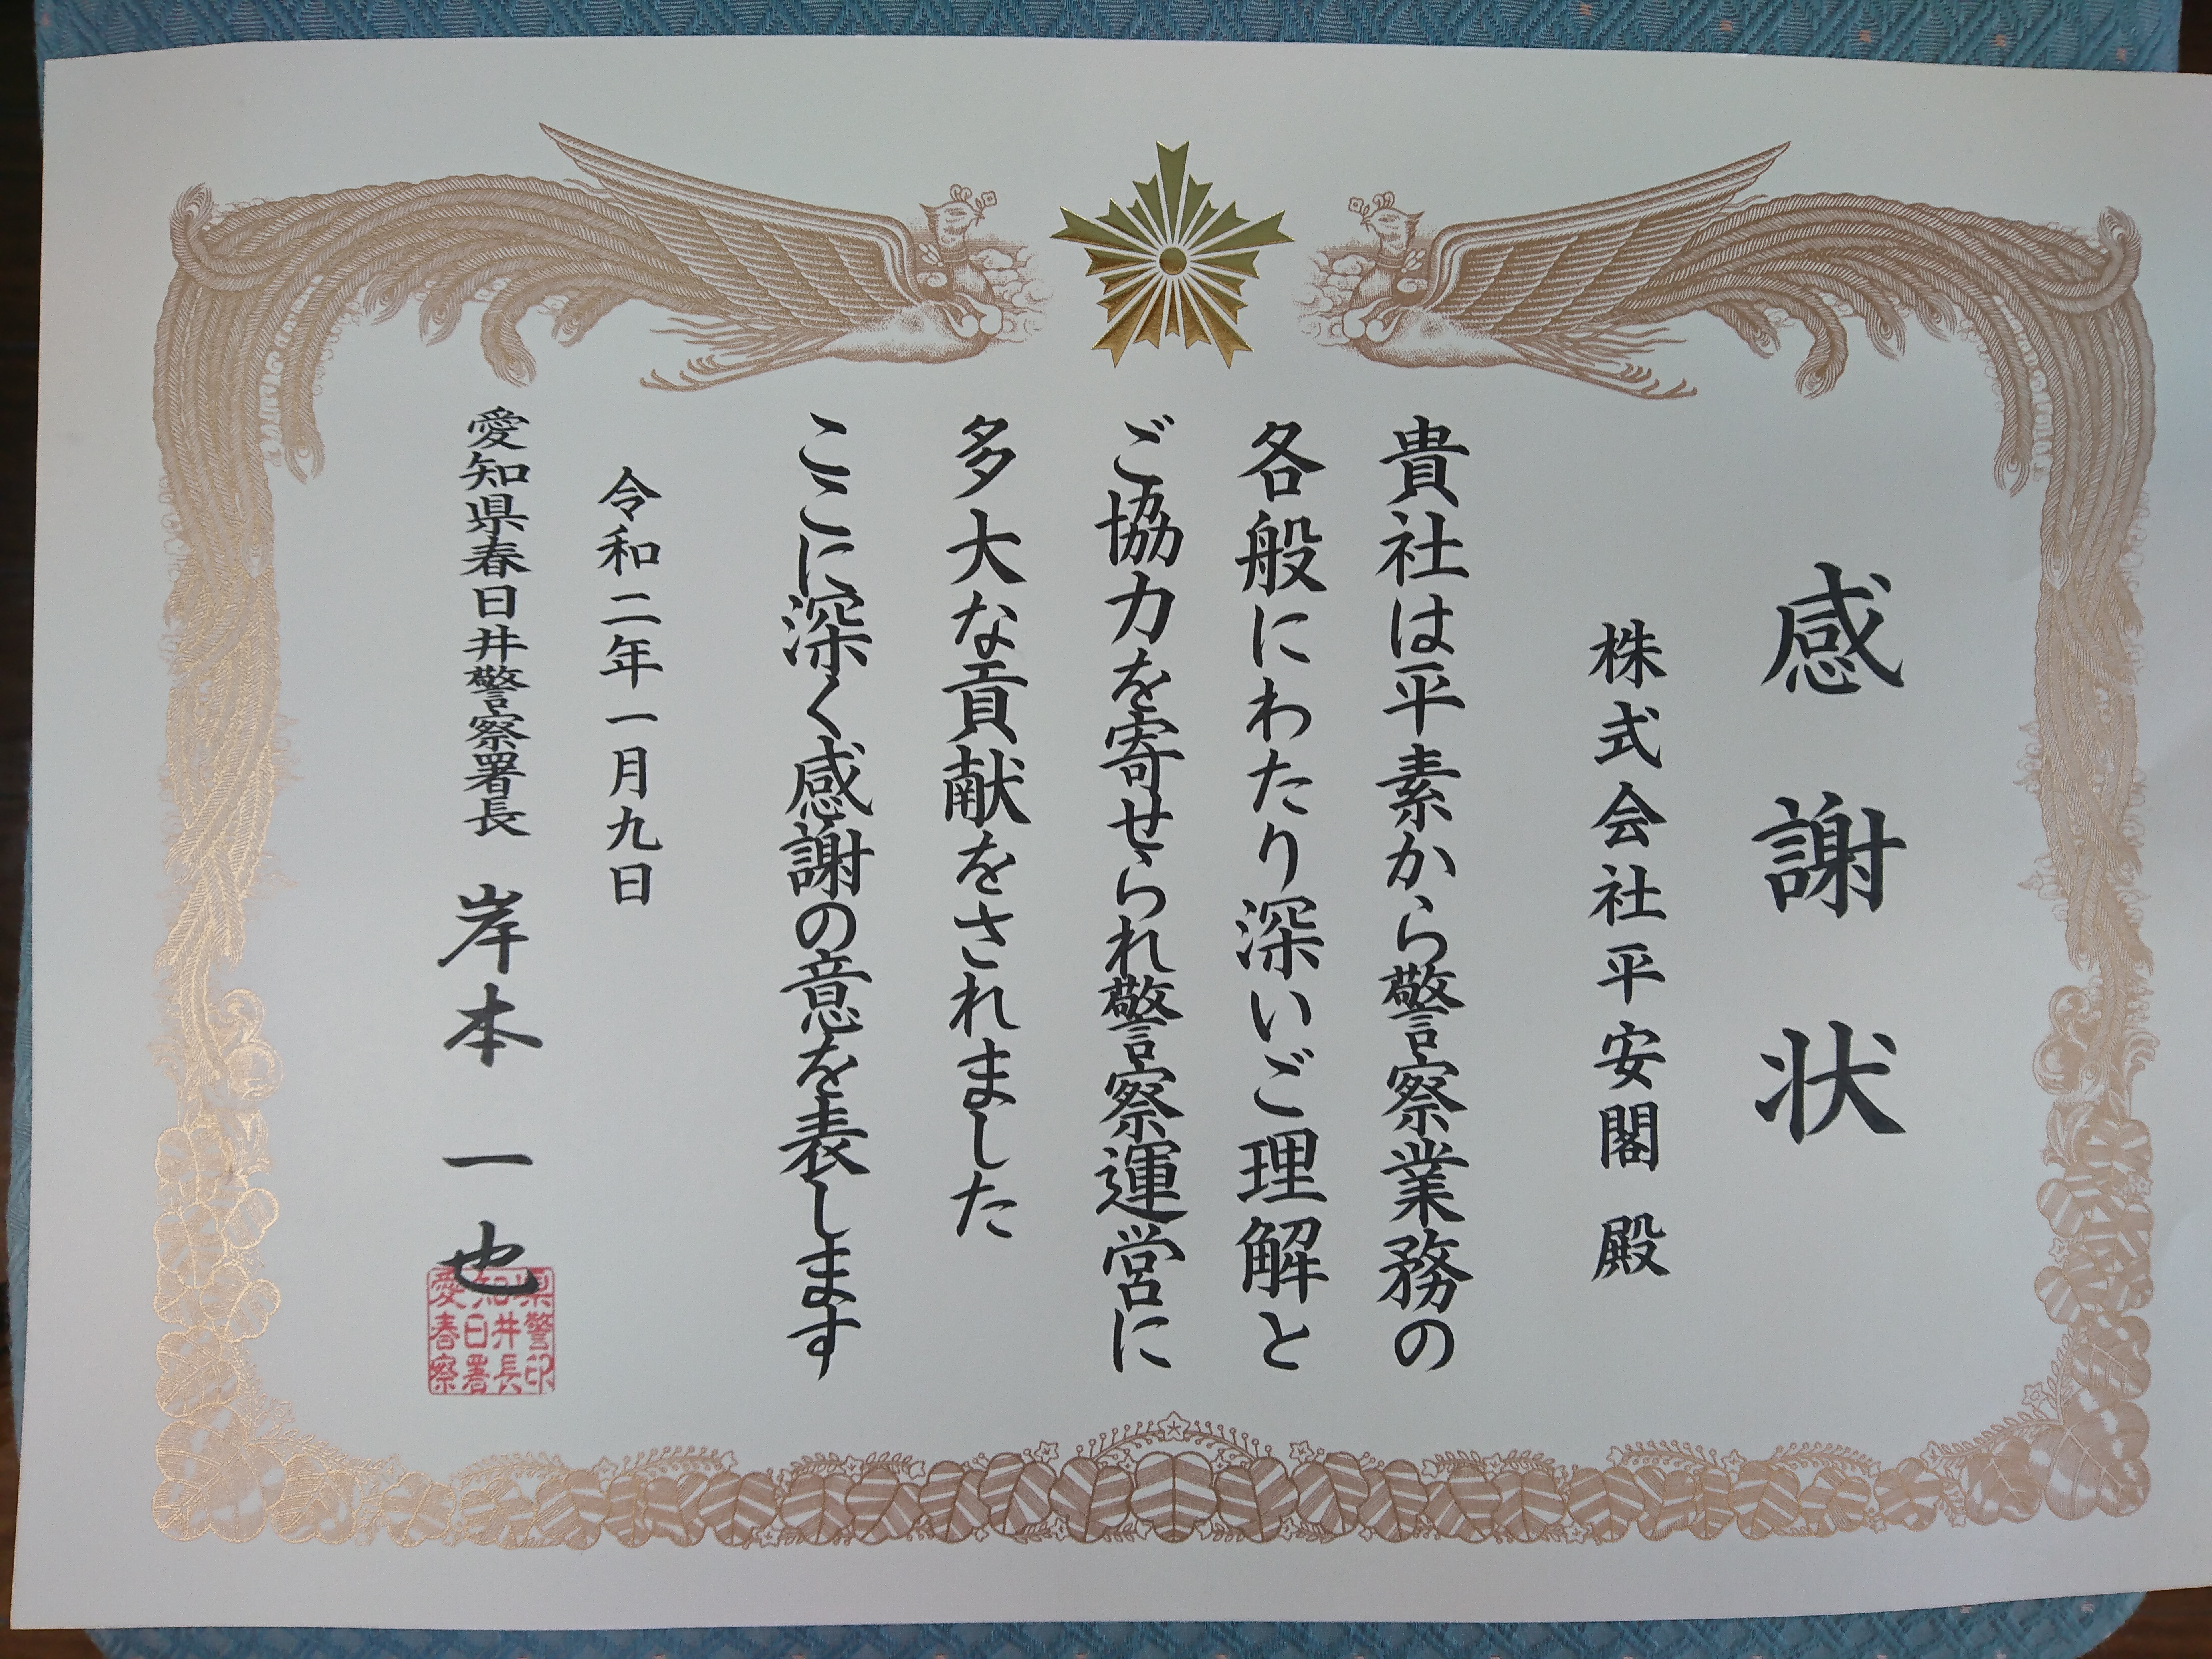 感謝状
株式会社平安閣 殿
貴社は平素から警察業務の
各般にわたり深いご理解と
ご協力を寄せられ警察運営に
多大な貢献をされました
ここに深く感謝の意を表します
令和二年一月九日
愛知県春日井警察署長 岸本一也